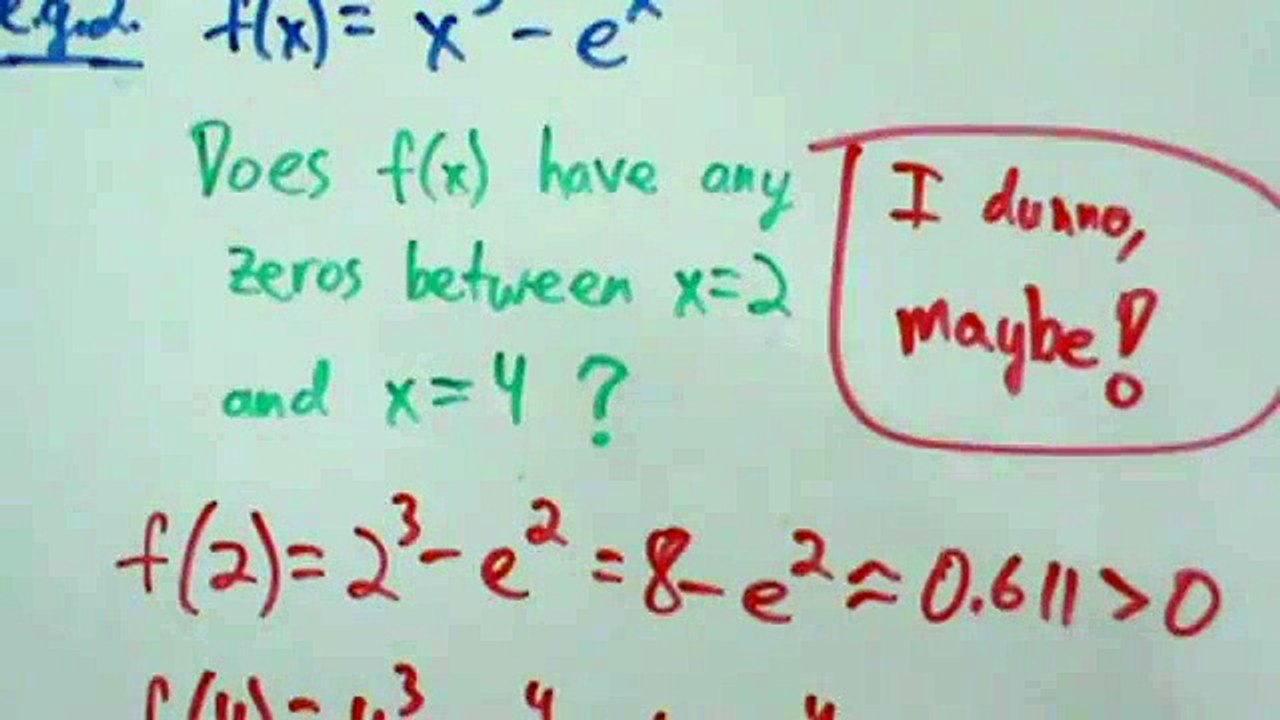 e.g.2. f(x) = x³ - eˣ
Does f(x) have any
zeros between x=2
and x=4 ?
I dunno,
maybe!
f(2) = 2³ - e² = 8 - e² ≈ 0.611 > 0